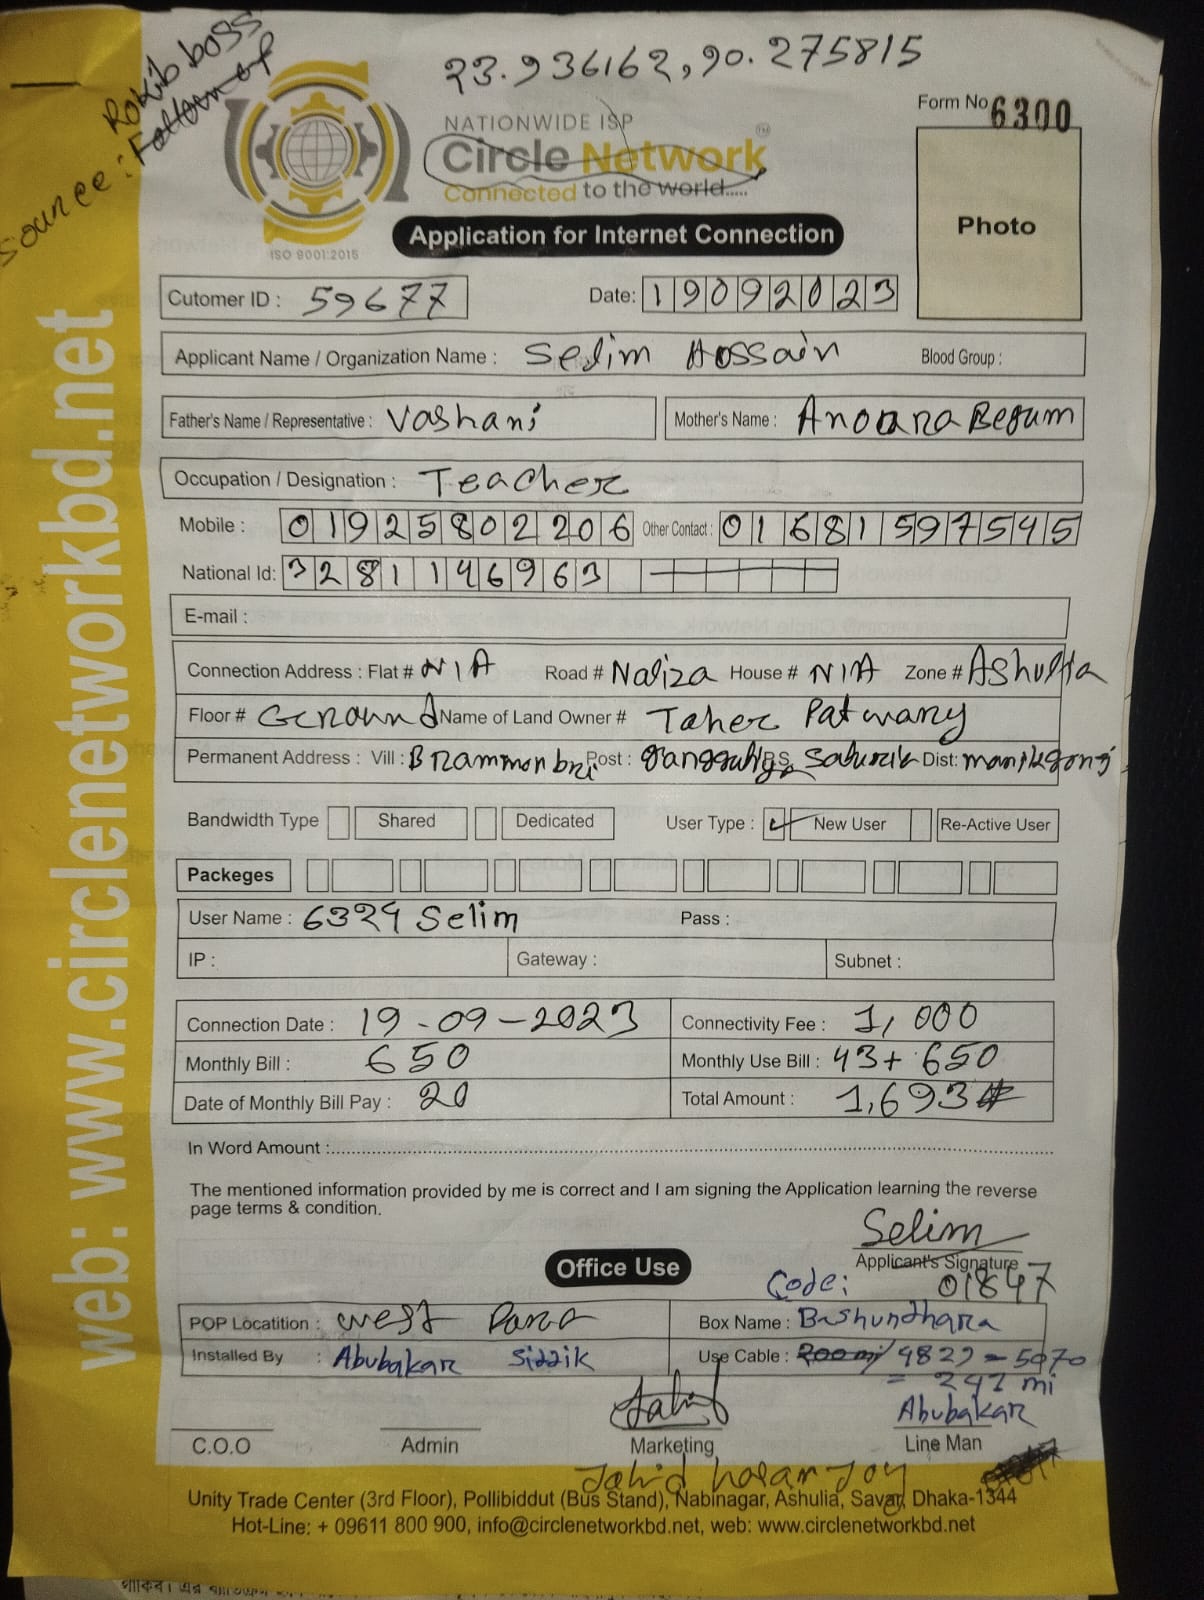 23.936162, 90.275815
Source: Rokib boss
NATIONWIDE ISP
Form No 6300
Circle Network TM
Connected to the world.....
ISO 9001:2015
Application for Internet Connection
Photo
Cutomer ID : 59677 Date: 19092023
Applicant Name / Organization Name : Selim Hossain Blood Group :
Father's Name / Representative : Vashani Mother's Name : Anoara Begum
Occupation / Designation : Teacher
Mobile : 01925802206 Other Contact : 01681597545
National Id: 3281146963
E-mail :
Connection Address : Flat # N/A Road # Naliza House # N/A Zone # Ashulia
Floor # Ground Name of Land Owner # Taher Patwary
Permanent Address : Vill : Post : PS Dist: manikgonj
Bandwidth Type Shared Dedicated User Type : ✓ New User Re-Active User
Packeges
User Name : 6329 Selim Pass :
IP : Gateway : Subnet :
Connection Date : 19-09-2023 Connectivity Fee : 1,000
Monthly Bill : 650 Monthly Use Bill : 43+650
Date of Monthly Bill Pay : 20 Total Amount : 1,693
In Word Amount :
The mentioned information provided by me is correct and I am signing the Application learning the reverse
page terms & condition.
Selim
Applicant's Signature
Office Use
Code: 01847
POP Locatition : West Para Box Name : Bashundhara
Installed By : Abubakar Siddik Use Cable : 200mi 4829 - 5070
= 241 mi
Abubakar
C.O.O Admin Marketing Line Man
Jahid hasan Joy
Unity Trade Center (3rd Floor), Pollibiddut (Bus Stand), Nabinagar, Ashulia, Savar, Dhaka-1344
Hot-Line: + 09611 800 900, info@circlenetworkbd.net, web: www.circlenetworkbd.net
web: www.circlenetworkbd.net